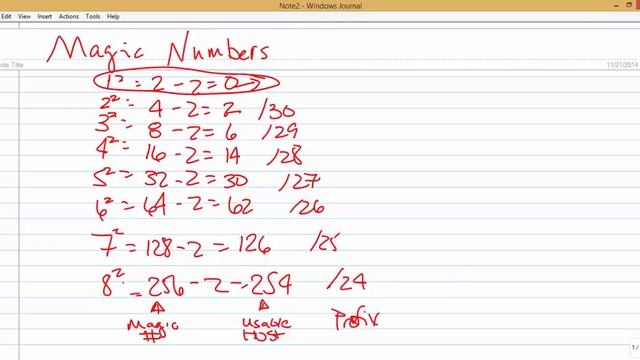 Note2 - Windows Journal
File Edit View Insert Actions Tools Help
Note Title
11/21/2014
Magic Numbers
1² = 2 - 2 = 0
2² = 4 - 2 = 2 /30
3² = 8 - 2 = 6 /29
4² = 16 - 2 = 14 /28
5² = 32 - 2 = 30 /27
6² = 64 - 2 = 62 /26
7² = 128 - 2 = 126 /25
8² = 256 - 2 - 254 /24
Magic # Usable Host Prefix
1 /